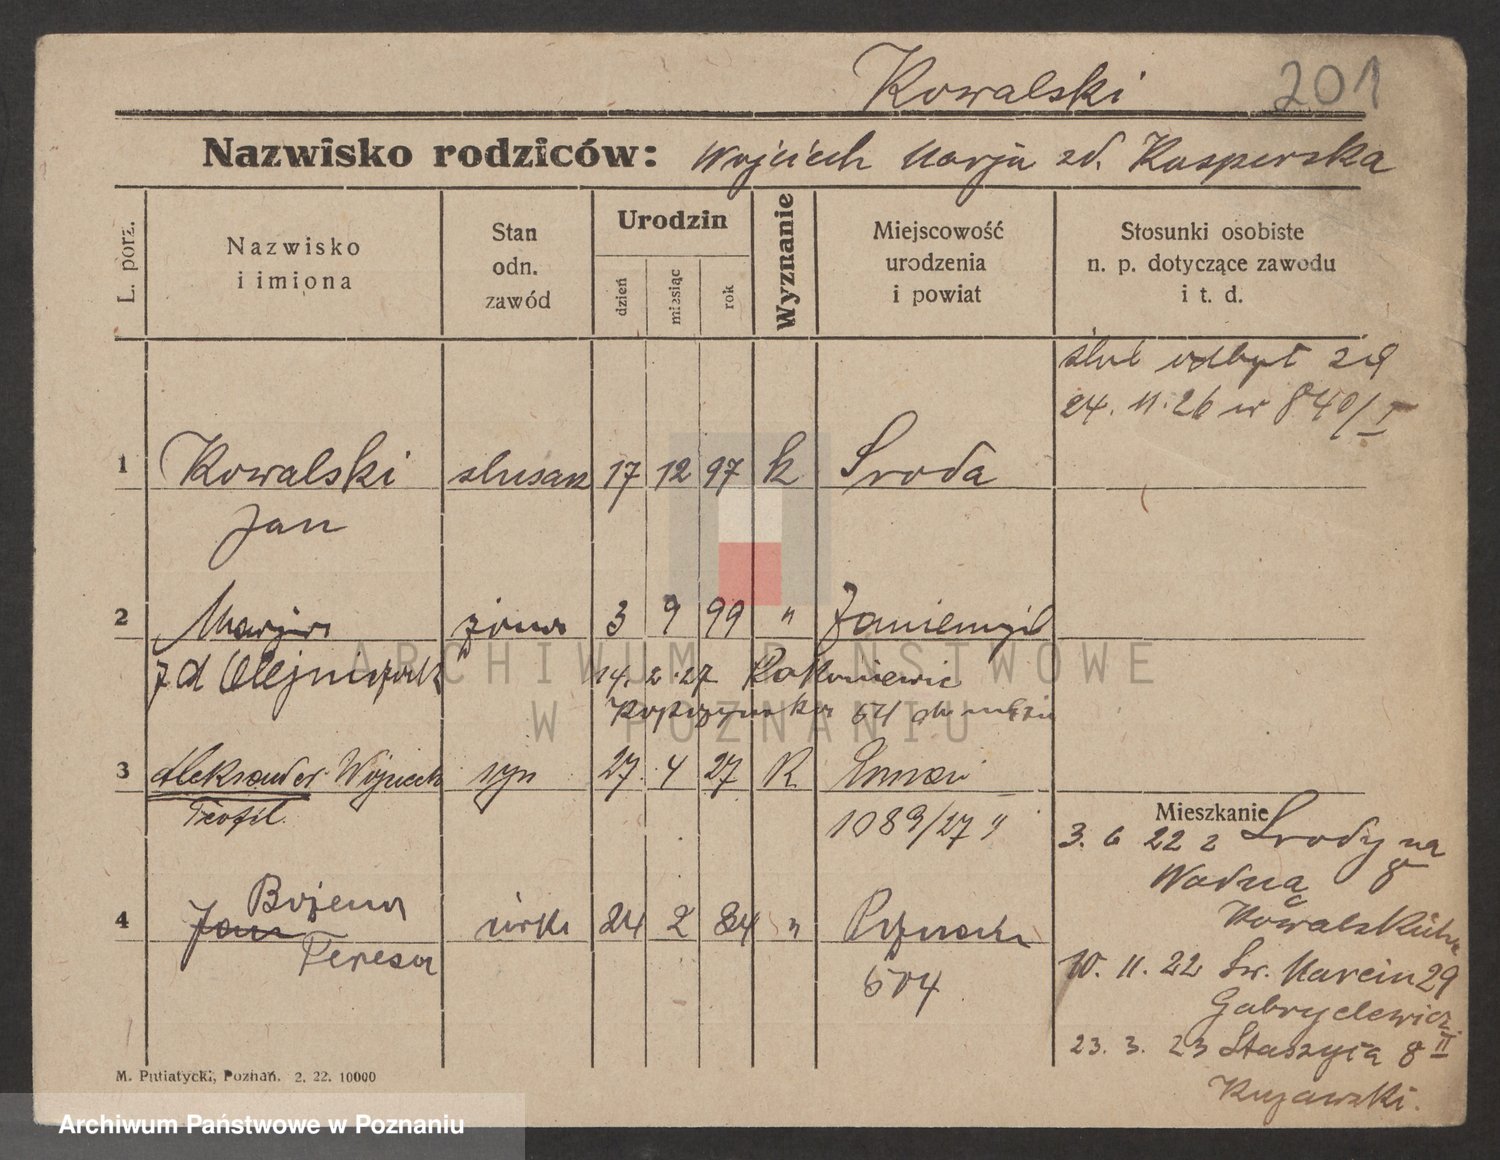 Kowalski 201
Nazwisko rodziców: Wojciech Marja zd. Kasperska
L. porz.
Nazwisko
i imiona
Stan
odn.
zawód
Urodzin
dzień
miesiąc
rok
Wyznanie
Miejscowość
urodzenia
i powiat
Stosunki osobiste
n. p. dotyczące zawodu
i t. d.
ślub odbył się
24. 11. 26 w 840/I
1 Kowalski slusarz 17 12 97 k Sroda
Jan
2 Marja żona 3 9 99 " Zaniemyśl
zd Olejniczak 14. 2. 27 Rakoniewic
3 Aleksander Wojciech syn 27 4 27 k
Teofil
1089/27
Mieszkanie
3. 6 22 z Srody na
Wodną 8
10. 11. 22 Sw. Marcin 29
Gabryelewicz
4 Bojena
Jan córka 24 2 34 "
Teresa
604
23. 3. 23 Staszyca 8 II
Kujawski.
M. Putiatycki, Poznań. 2. 22. 10000
ARCHIWUM PAŃSTWOWE
W POZNANIU
Archiwum Państwowe w Poznaniu